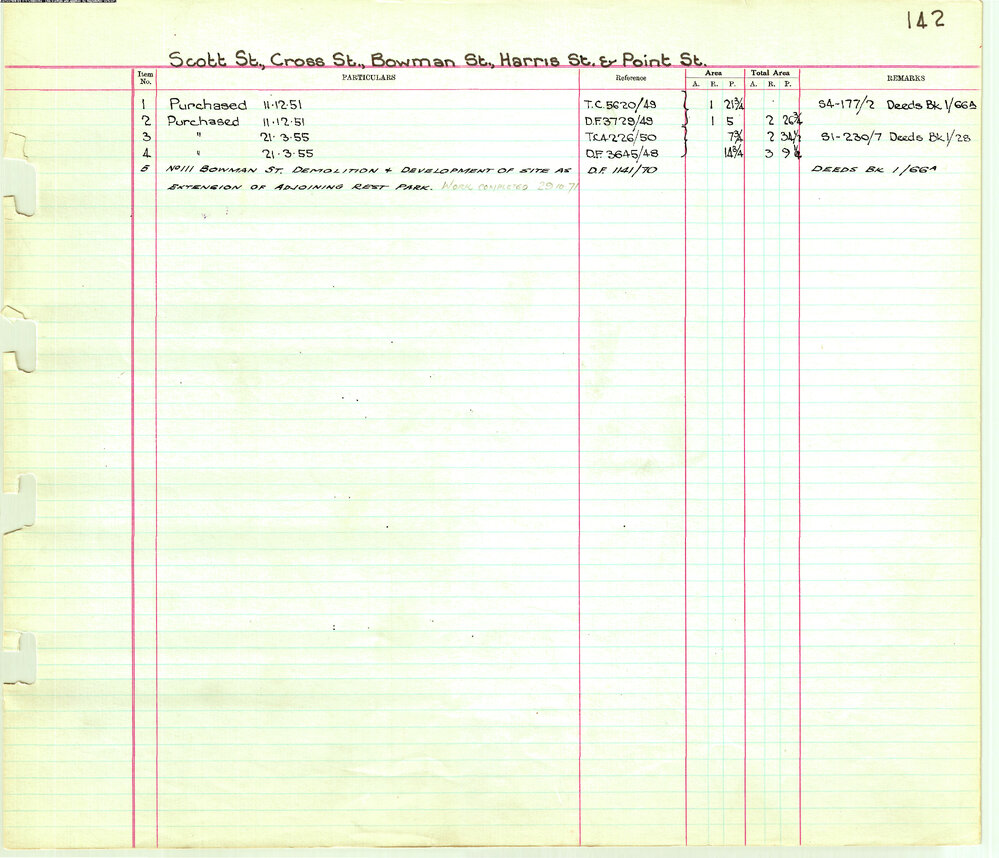 142
Scott St., Cross St., Bowman St., Harris St. & Point St.
Item No. PARTICULARS Reference Area A. R. P. Total Area A. R. P. REMARKS
1 Purchased 11.12.51 T.C. 5620/49 1 21¾ S4-177/2 Deeds Bk 1/66A
2 Purchased 11.12.51 D.F. 3729/49 1 5 2 26¾
3 " 21.3.55 T.C. 4226/50 7¾ 2 34½ S1-230/7 Deeds Bk 1/28
4 " 21.3.55 D.F. 3645/48 14¾ 3 9¼
5 No 111 BOWMAN ST. DEMOLITION & DEVELOPMENT OF SITE AS D.F. 1141/70 DEEDS BK 1/66A
EXTENSION OF ADJOINING REST PARK. WORK COMPLETED 29.10.71